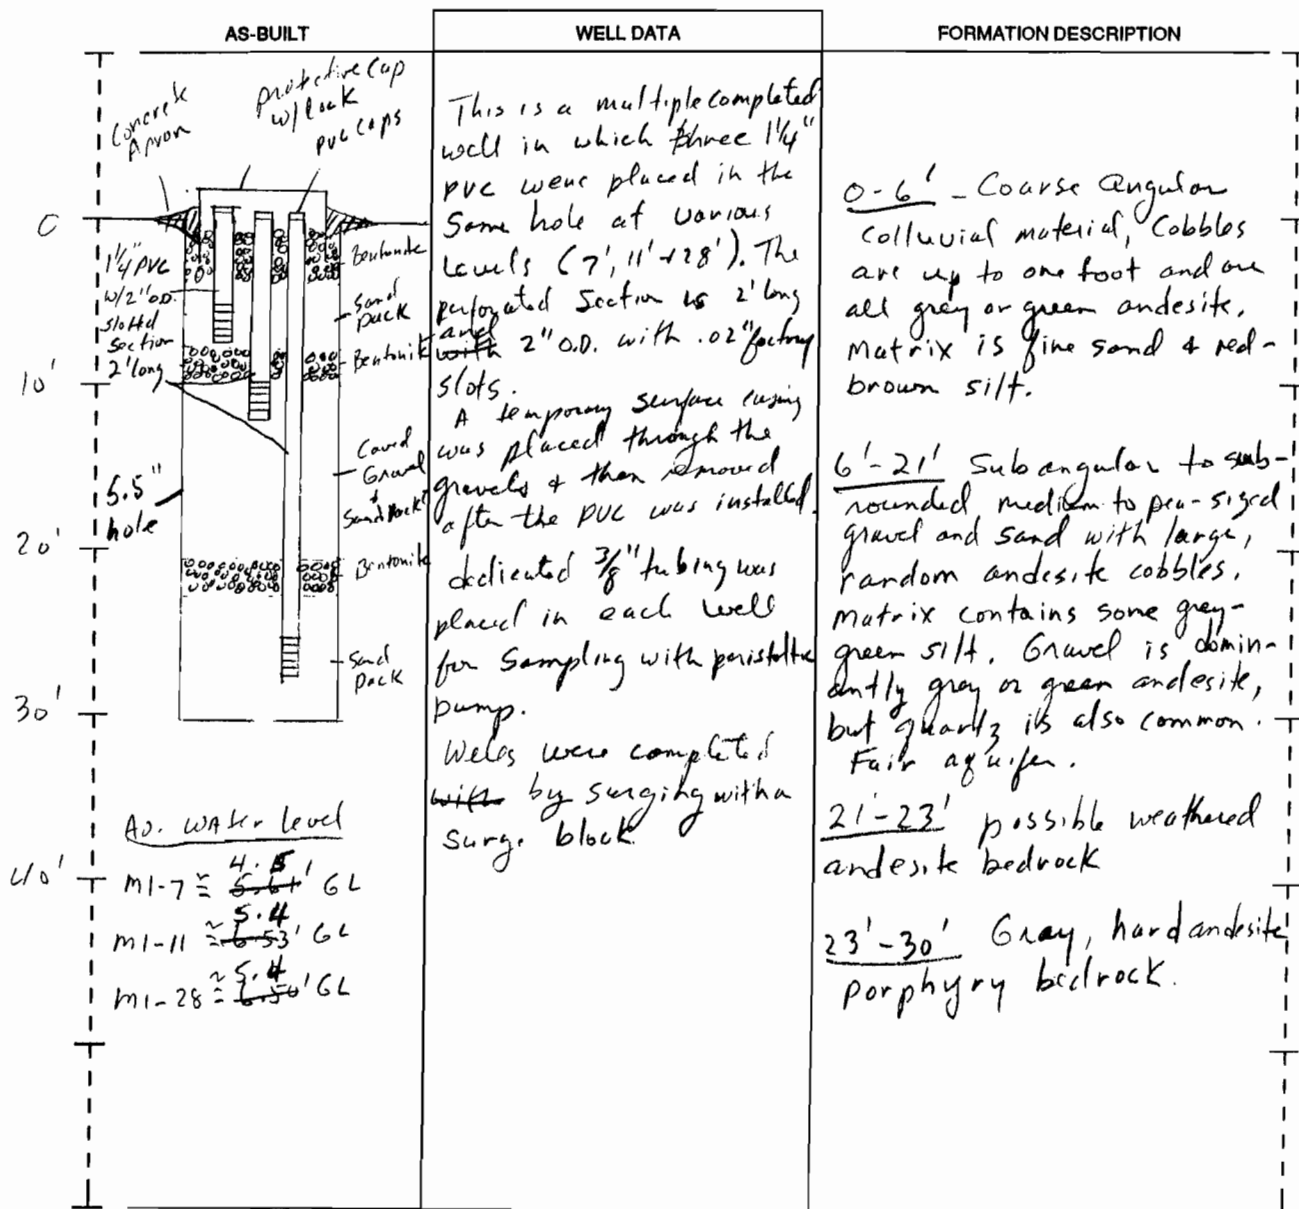 AS-BUILT
WELL DATA
FORMATION DESCRIPTION
Concrete
Apron
protective Cap
w/lock
PVC Caps
0
10'
20'
30'
40'
1 1/4" PVC
w/2" O.D.
slotted
section
2' long
5.5"
hole
Bentonite
Sand
pack
Bentonite
Caved
Gravel
&
Sand Pack
Bentonite
Sand
pack
Av. Water level
M1-7 ≅ 4.5' GL
M1-11 ≅ 5.4' GL
M1-28 ≅ 5.4' GL
This is a multiple completed
well in which three 1 1/4"
PVC were placed in the
Same hole at various
Levels (7', 11' + 28'). The
perforated Section is 2' long
and 2" O.D. with .02" factory
slots.
A temporary surface casing
was placed through the
gravels & then removed
after the PVC was installed.
dedicated 3/8" tubing was
placed in each well
for Sampling with peristaltic
pump.
Wells were completed
by surging with a
surge block.
0-6' - Coarse angular
Colluvial material, Cobbles
are up to one foot and are
all grey or green andesite.
Matrix is fine sand & red-
brown silt.
6'-21' Subangular to sub-
rounded medium to pea-sized
gravel and sand with large,
random andesite cobbles.
Matrix contains some grey-
green silt. Gravel is domin-
antly grey or green andesite,
but quartz is also common.
Fair aquifer.
21'-23' possible weathered
andesite bedrock
23'-30' Gray, hard andesite
porphyry bedrock.